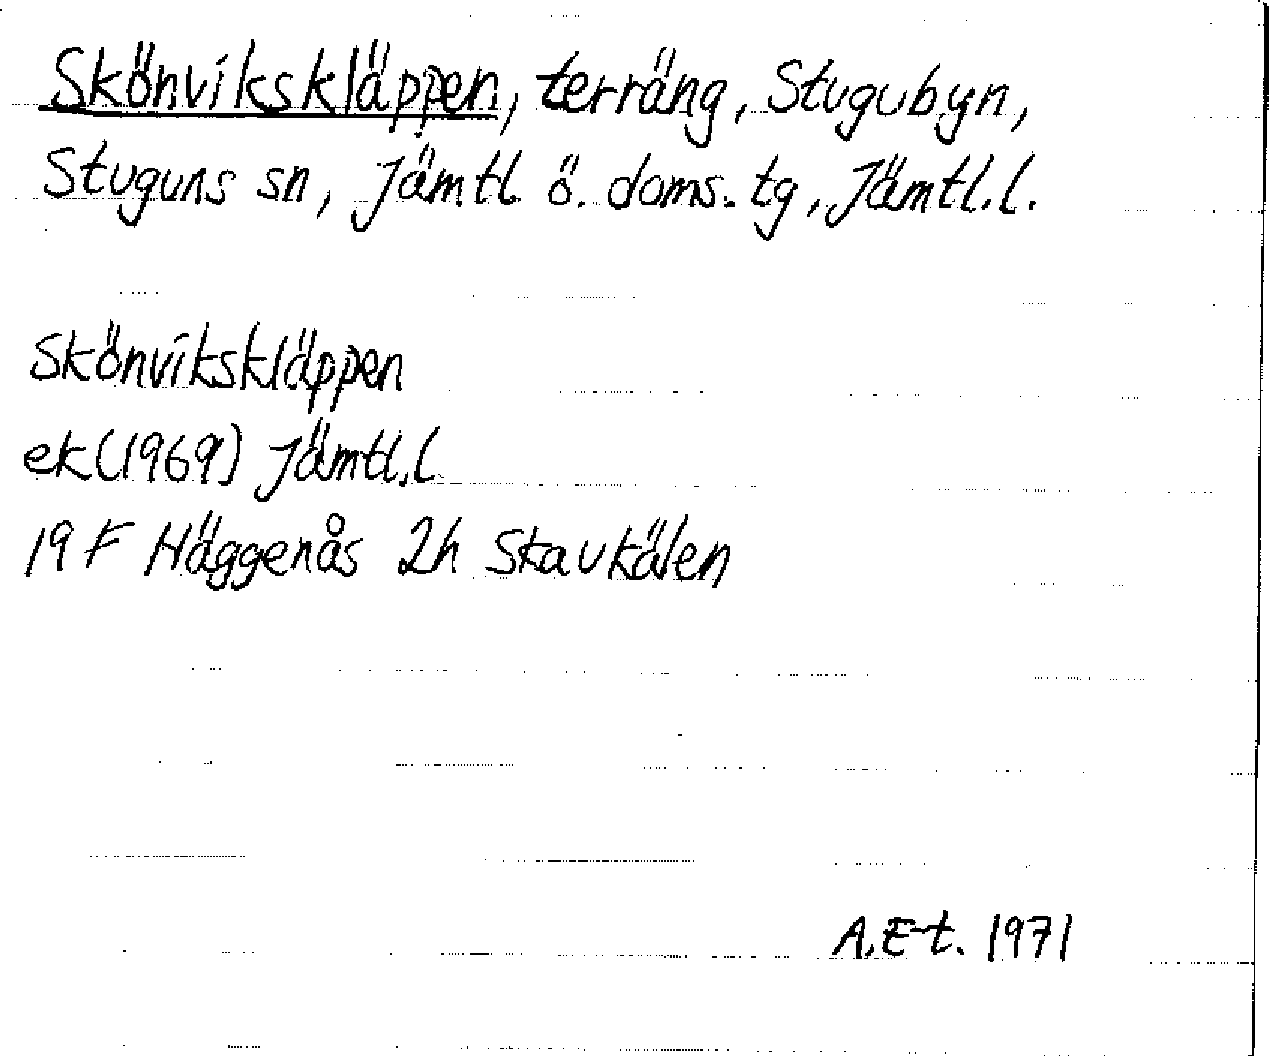 Skönvikskläppen, terräng, Stugubyn,
Stuguns sn, Jämtl. ö. doms. tg, Jämtl.l.
Skönvikskläppen
ek(1969) Jämtl.l.
19 F Häggenås 2h Skavkälen
A.E-t. 1971